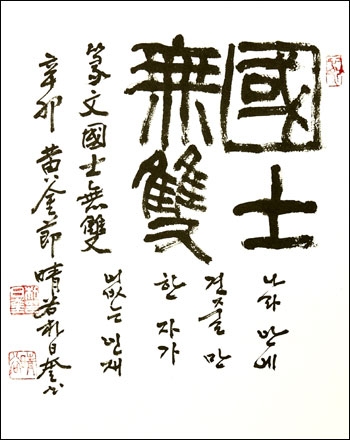 國士
無雙
나라 안에
견줄 만
한 자가
없는 인재
篆文國士無雙
辛卯 黃金節 晴